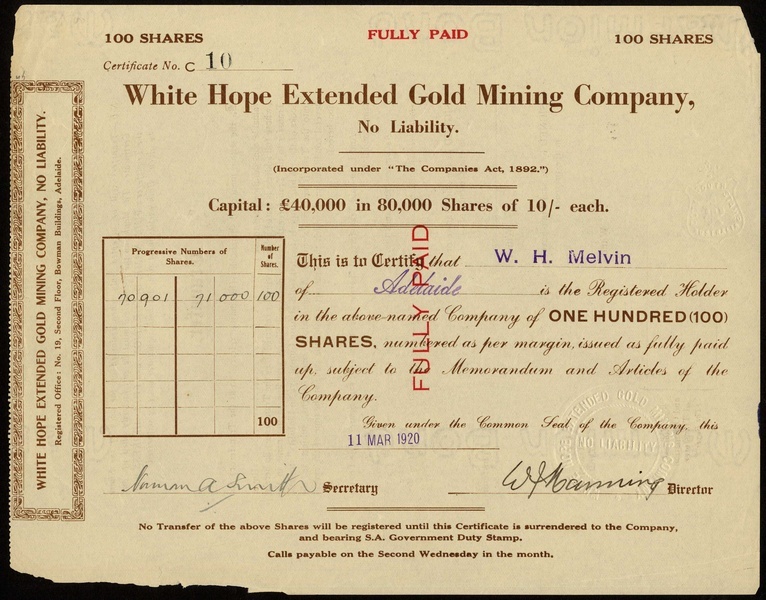 100 SHARES
FULLY PAID
100 SHARES
Certificate No. C 10
White Hope Extended Gold Mining Company,
No Liability.
(Incorporated under "The Companies Act, 1892.")
Capital: £40,000 in 80,000 Shares of 10/- each.
WHITE HOPE EXTENDED GOLD MINING COMPANY, NO LIABILITY.
Registered Office: No. 19, Second Floor, Bowman Buildings, Adelaide.
Progressive Numbers of Shares.
Number of Shares.
70901 71000 100
100
This is to Certify that W. H. Melvin
of Adelaide is the Registered Holder
in the above-named Company of ONE HUNDRED (100)
SHARES, numbered as per margin, issued as fully paid
up, subject to the Memorandum and Articles of the
Company.
FULLY PAID
Given under the Common Seal of the Company, this
11 MAR 1920
NO LIABILITY
Norman A Smith Secretary
W J Manning Director
No Transfer of the above Shares will be registered until this Certificate is surrendered to the Company,
and bearing S.A. Government Duty Stamp.
Calls payable on the Second Wednesday in the month.